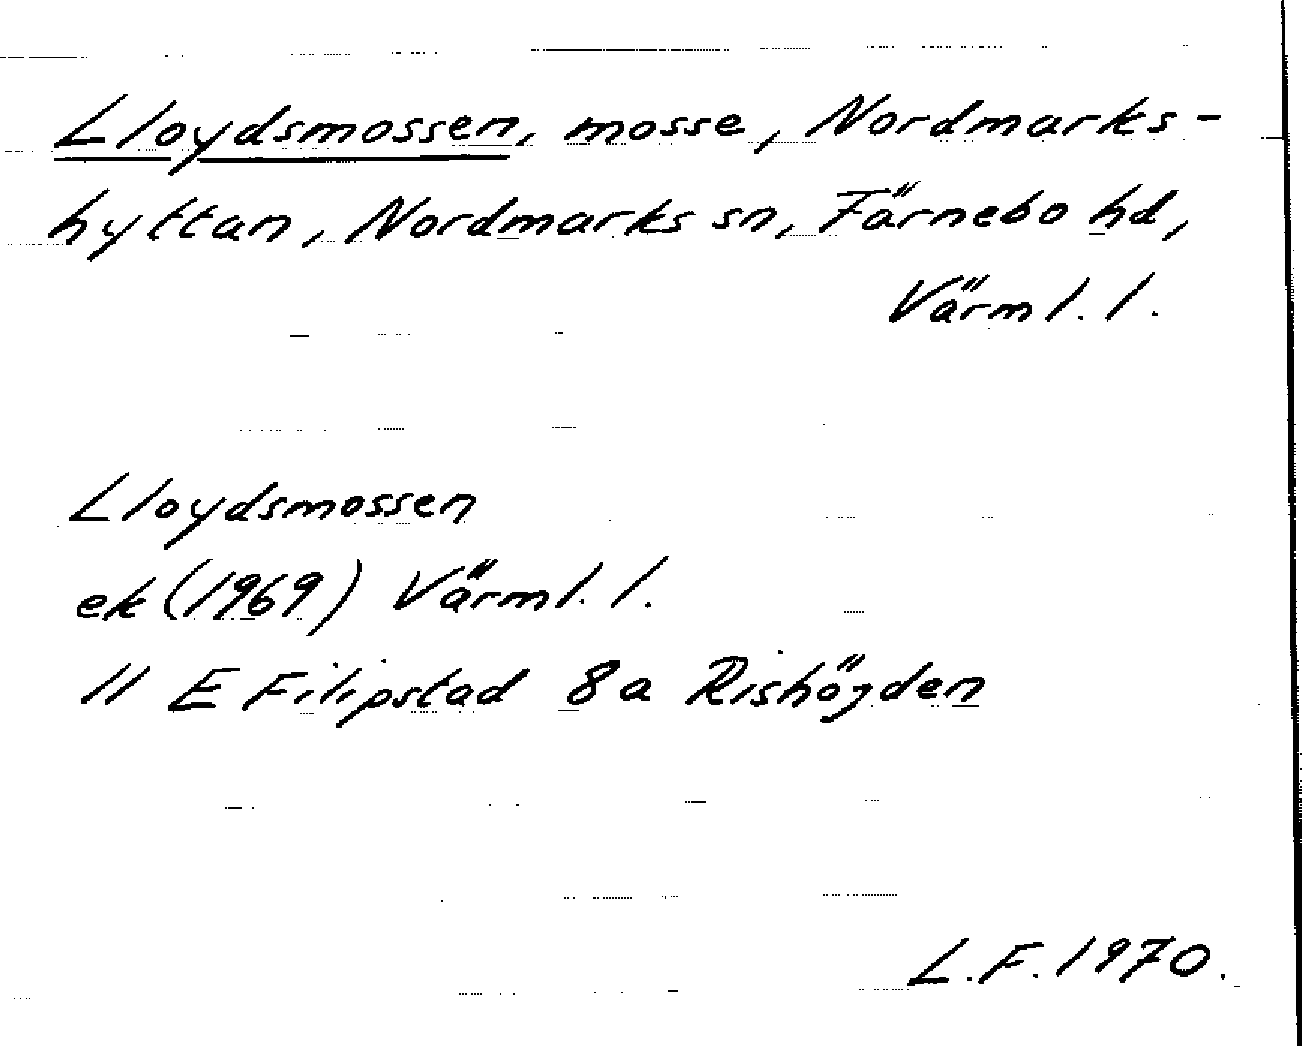 Lloydsmossen, mosse, Nordmarks-
hyttan, Nordmarks sn, Färnebo hd,
Värml. l.
Lloydsmossen
ek (1969) Värml. l.
11 E Filipstad 8a Rishöjden
L.F. 1970.